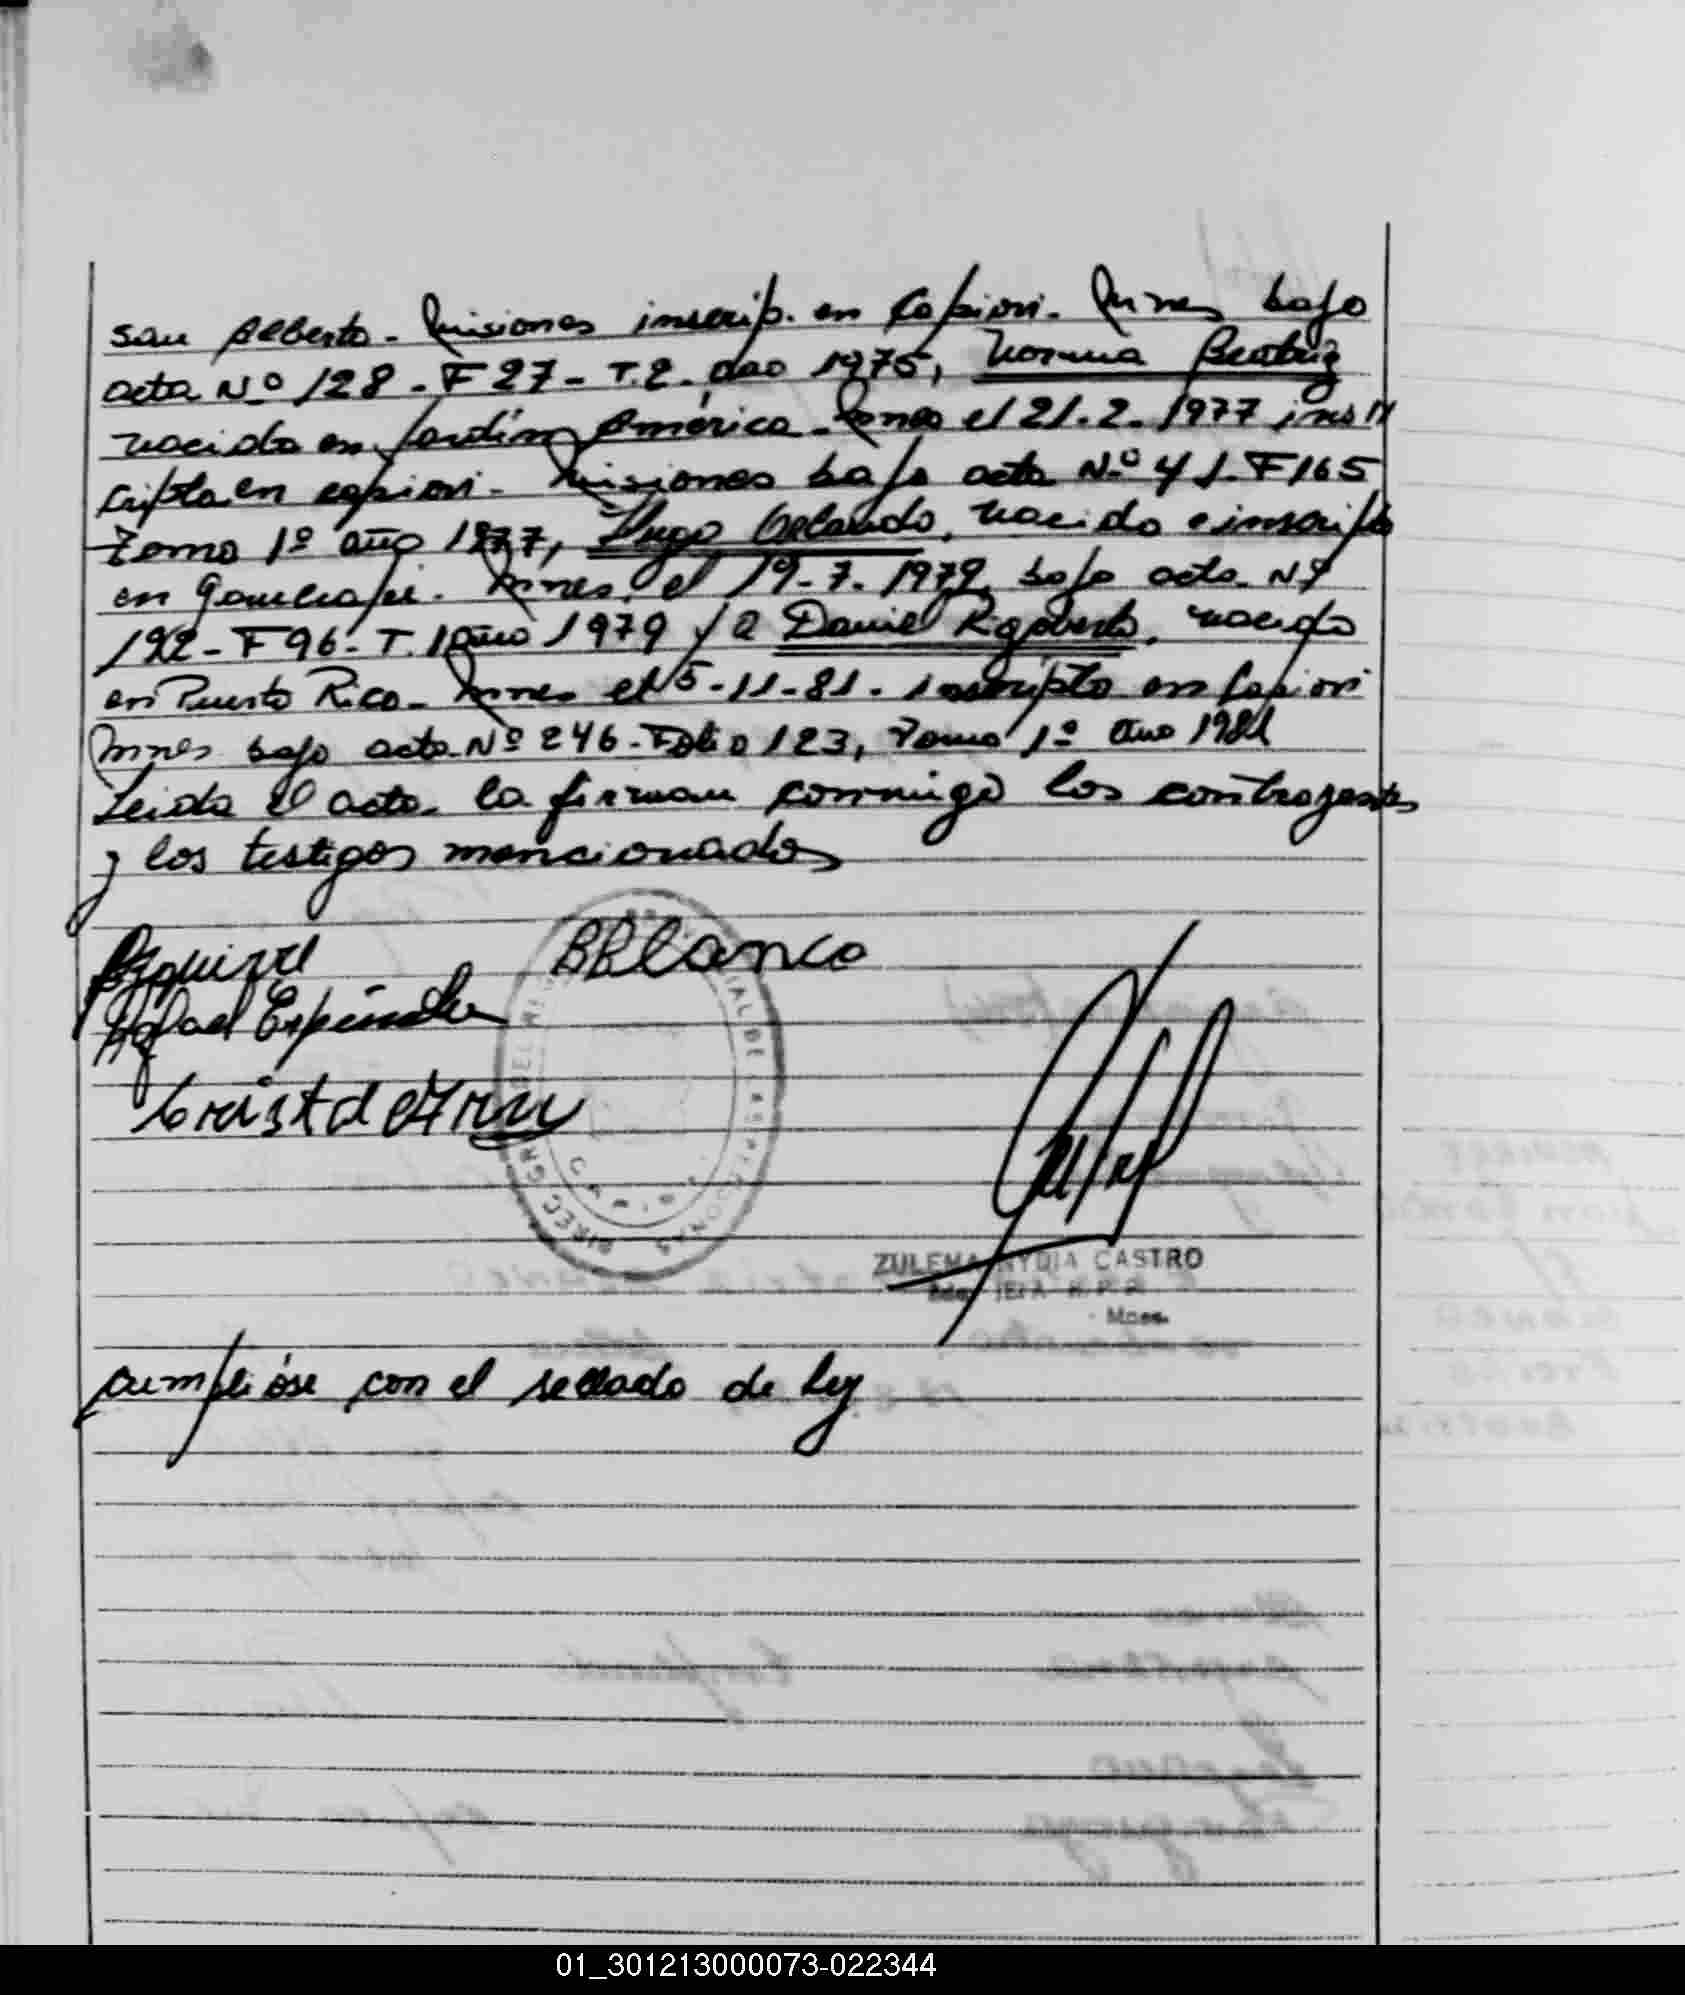 san Alberto - Misiones inscrip. en Capiovi. Mnes bajo
acta Nº 128 - F 27 - T. 2. año 1975, Norma Beatriz
nacida en Jardín América - Mnes el 21.2.1977 ins //
cripta en capiovi - Misiones bajo acta Nº 41. F 165
tomo 1º año 1977, Hugo Orlando, nacido e inscripto
en Garuhapé. Mnes. el 19-7-1979, bajo acta Nº
192 - F 96 - T. 1 año 1979 y a Daniel Rigoberto, nacido
en Puerto Rico - Mnes el 5-11-81. inscripto en Capiovi
Mnes bajo acta Nº 246 - Folio 123, Tomo 1º año 1981
Leida el acta. la firman conmigo los contrayentes
y los testigos mencionados
BBlanco
Rafael Espindola
DIREC. GRAL. DEL REG. PROVINCIAL DE LAS PERSONAS
ZULEMA NYDIA CASTRO
JEFA R. P. P.
Mnes.
cumplióse con el sellado de ley
01_301213000073-022344